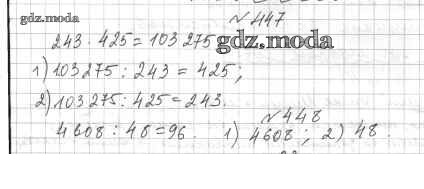 gdz.moda
№447
243 · 425 = 103 275 gdz.moda
1) 103275 : 243 = 425;
2) 103275 : 425 = 243.
№448
4608 : 48 = 96. 1) 4608; 2) 48.